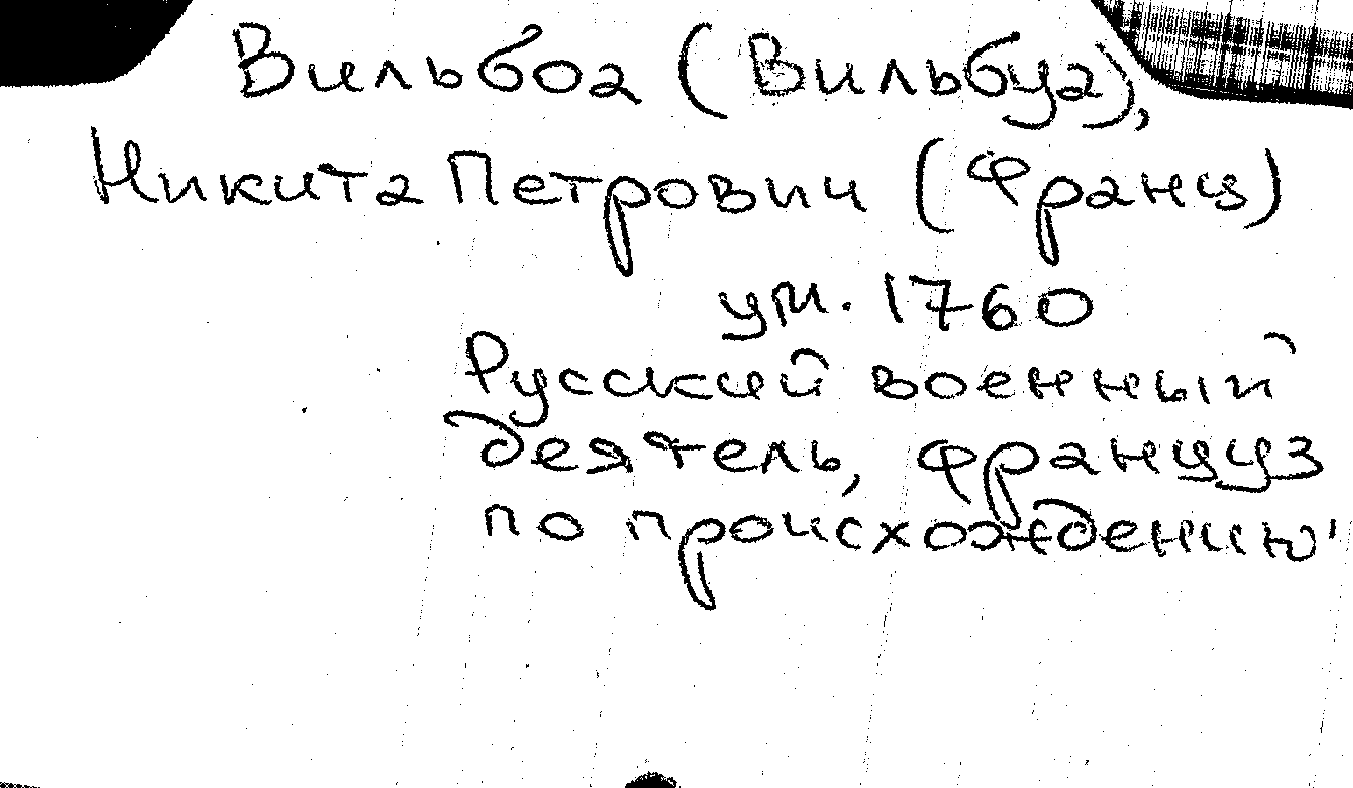 Вильбоа (Вильбуа),
Никита Петрович (Франц)
ум. 1760
Русский военный
деятель, француз
по происхождению